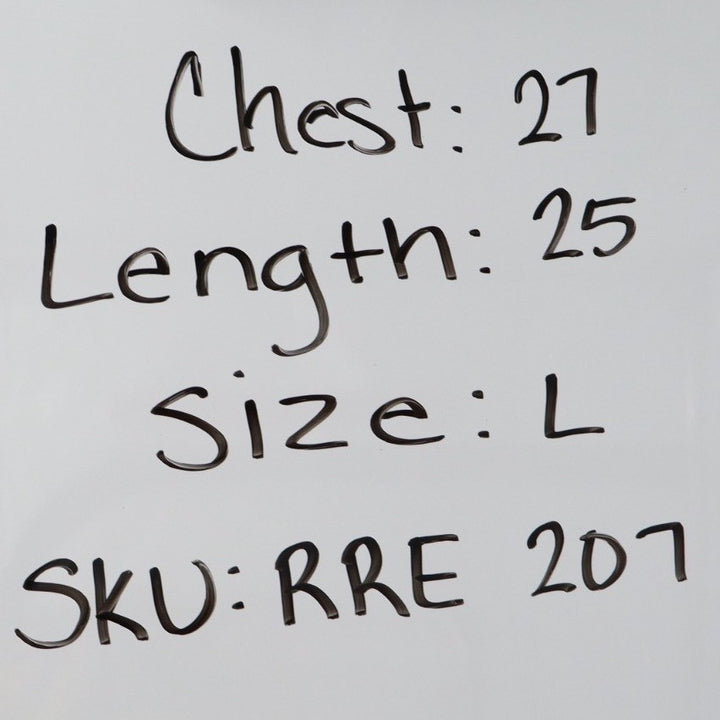 Chest: 27
Length: 25
Size: L
SKU: RRE 207